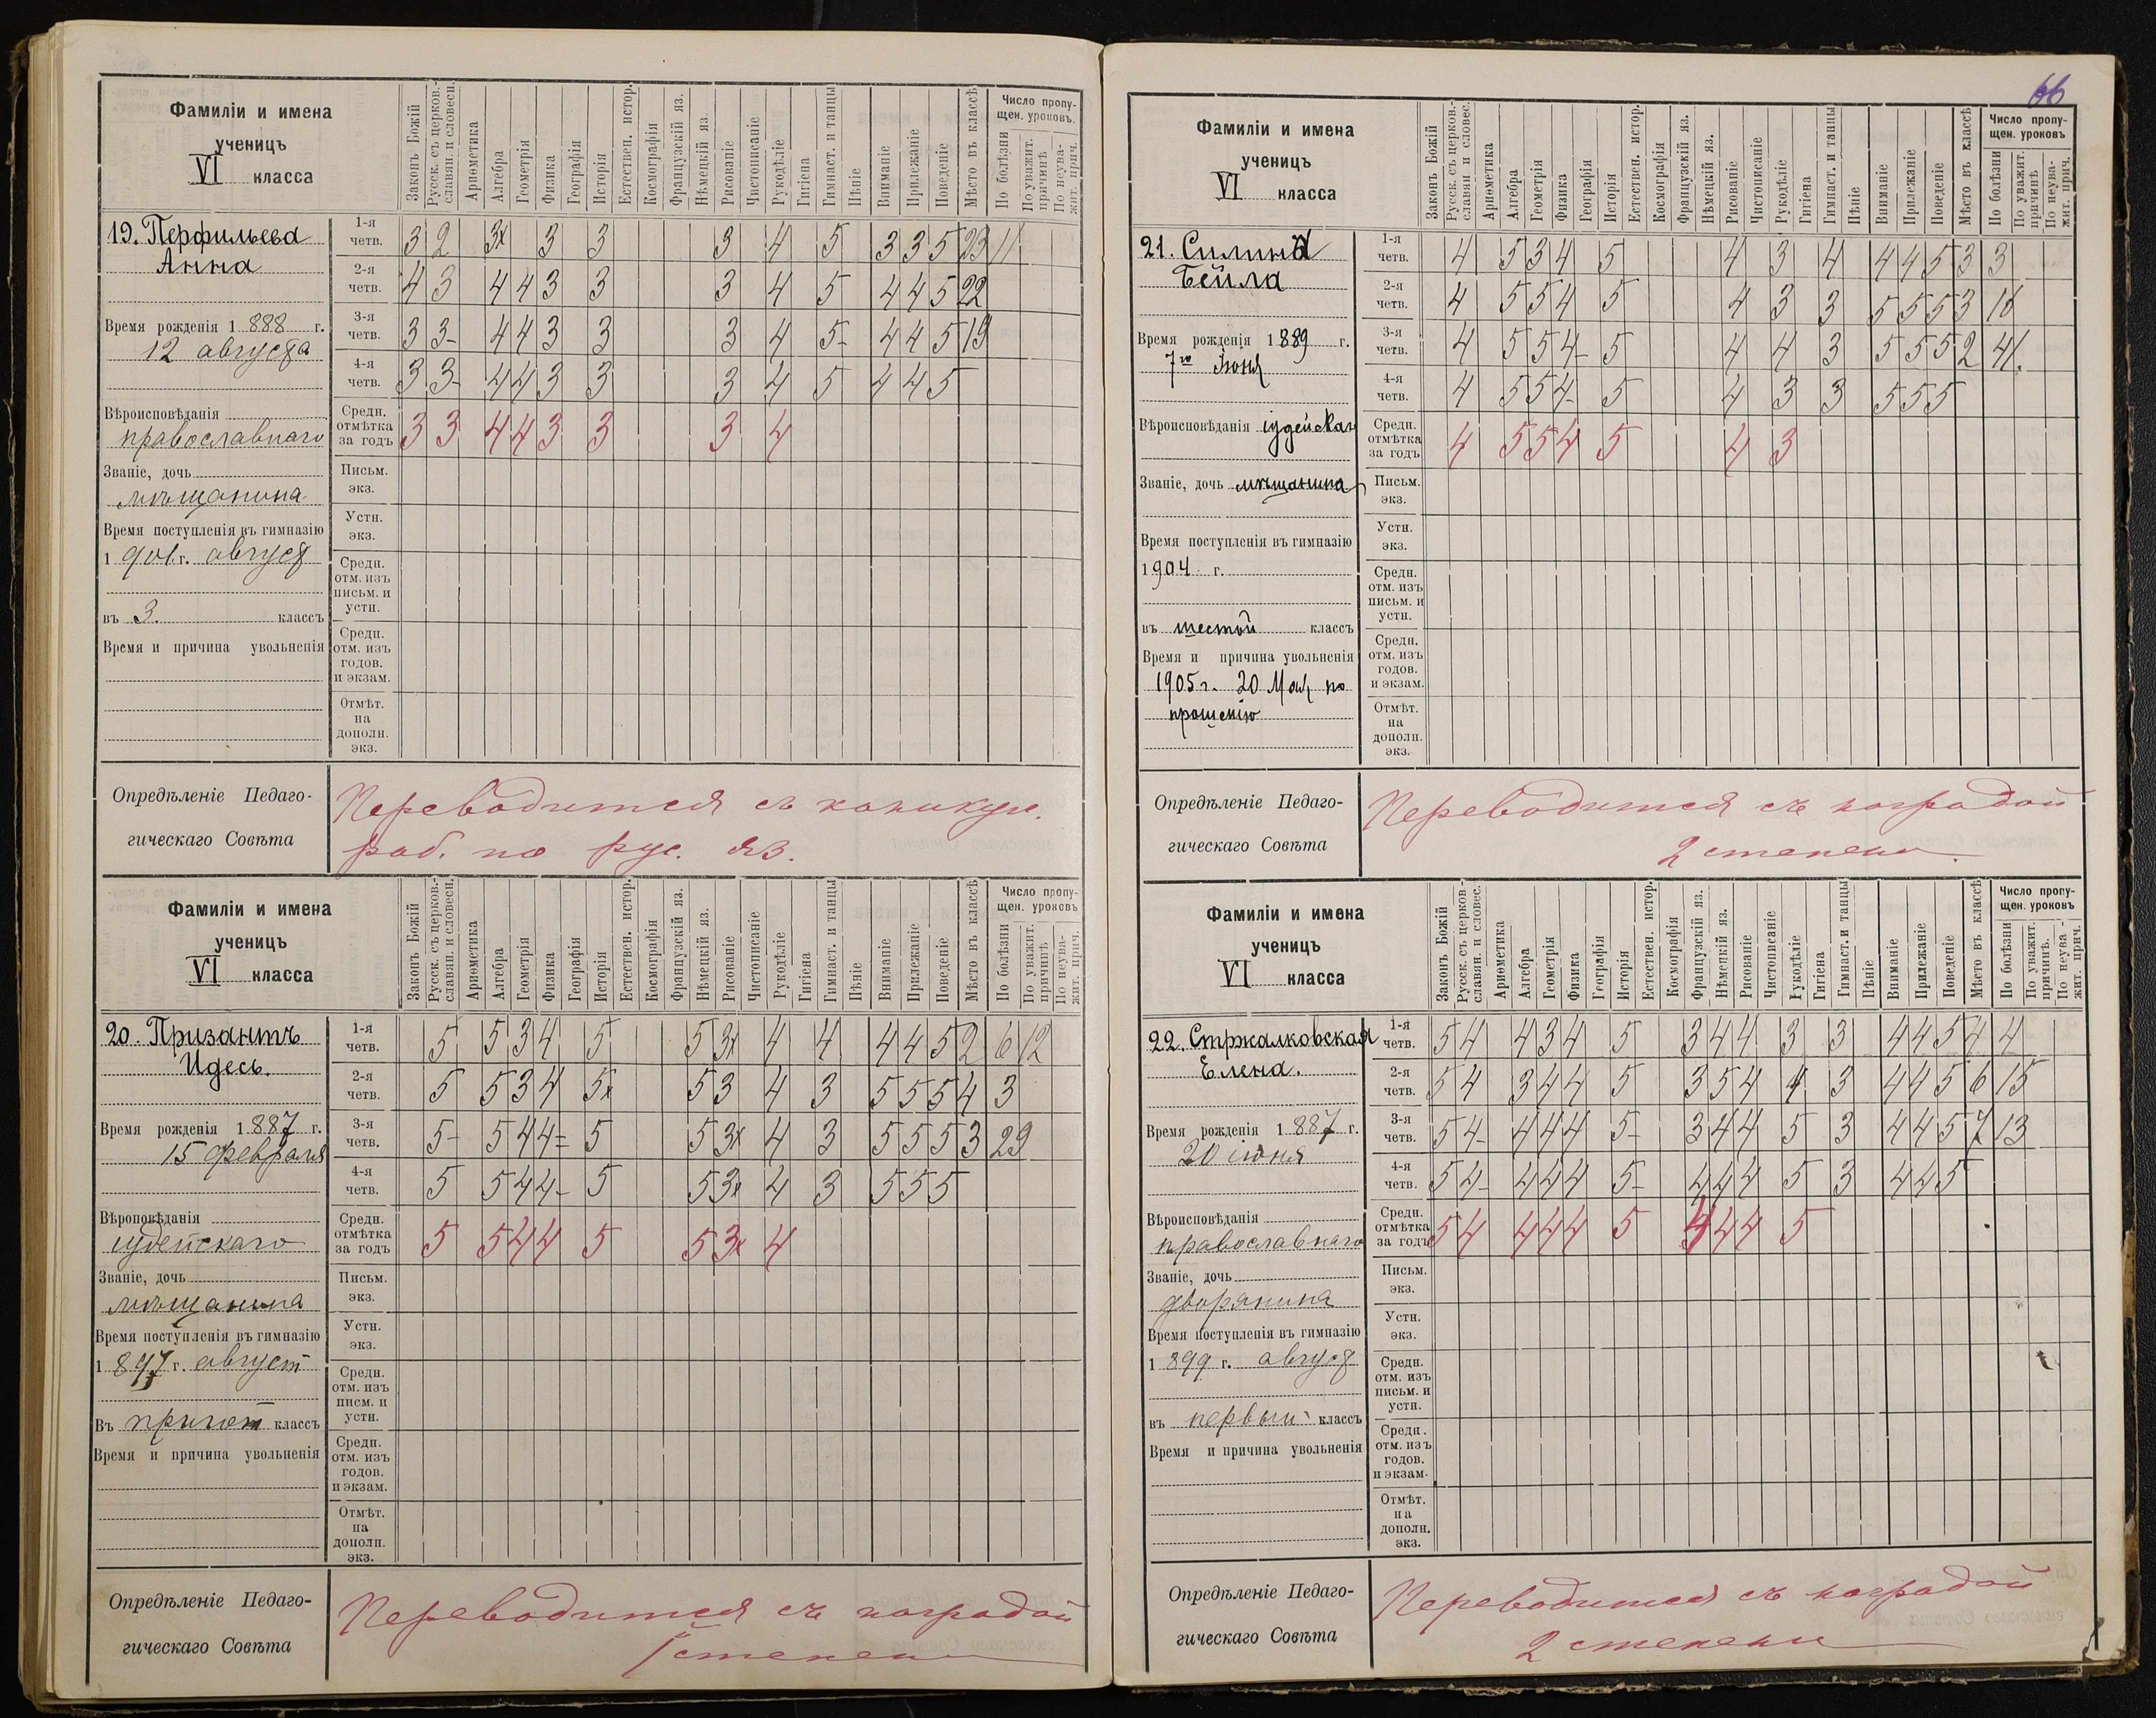 Фамиліи и имена
ученицъ
VI класса
Законъ Божій
Русск. съ церков.-
славян. и словесн.
Ариѳметика
Алгебра
Геометрія
Физика
Географія
Исторія
Естествен. истор.
Космографія
Французскій яз.
Нѣмецкій яз.
Рисованіе
Чистописаніе
Рукодѣліе
Гигіена
Гимнаст. и танцы
Пѣніе
Вниманіе
Прилежаніе
Поведеніе
Мѣсто въ классѣ
Число пропу-
щен. уроковъ.
По болѣзни
По уважит.
причинѣ
По неува-
жит. прич.
19. Перфильева
Анна
Время рожденія 1888 г.
12 августа
Вѣроисповѣданія
православнаго
Званіе, дочь
мѣщанина
Время поступленія въ гимназію
1901 г. август
въ 3. классъ
Время и причина увольненія
1-я четв. 3 2 3x 3 3 3 4 5 3 3 5 23 11
2-я четв. 4 3 4 4 3 3 3 4 5 4 4 5 22
3-я четв. 3 3- 4 4 3 3 3 4 5- 4 4 5 19
4-я четв. 3 3- 4 4 3 3 3 4 5 4 4 5
Средн. отмѣтка за годъ 3 3 4 4 3 3 3 4
Письм. экз.
Устн. экз.
Средн. отм. изъ письм. и устн.
Средн. отм. изъ годов. и экзам.
Отмѣт. на дополн. экз.
Опредѣленіе Педаго-
гическаго Совѣта
Переводится съ каникул.
раб. по рус. яз.
Фамиліи и имена
ученицъ
VI класса
Законъ Божій
Русск. съ церков.-
славян. и словесн.
Ариѳметика
Алгебра
Геометрія
Физика
Географія
Исторія
Естествен. истор.
Космографія
Французскій яз.
Нѣмецкій яз.
Рисованіе
Чистописаніе
Рукодѣліе
Гигіена
Гимнаст. и танцы
Пѣніе
Вниманіе
Прилежаніе
Поведеніе
Мѣсто въ классѣ
Число пропу-
щен. уроковъ
По болѣзни
По уважит.
причинѣ
По неува-
жит. прич.
20. Призантъ
Идесь.
Время рожденія 1887 г.
15 февраля
Вѣроповѣданія
іудейскаго
Званіе, дочь
мѣщанина
Время поступленія въ гимназію
1897 г. август
Въ пригот классъ
Время и причина увольненія
1-я четв. 5 5 3 4 5 5 3x 4 4 4 4 5 2 6 12
2-я четв. 5 5 3 4 5x 5 3 4 3 5 5 5 4 3
3-я четв. 5- 5 4 4= 5 5 3x 4 3 5 5 5 3 29
4-я четв. 5 5 4 4- 5 5 3x 4 3 5 5 5
Средн. отмѣтка за годъ 5 5 4 4 5 5 3x 4
Письм. экз.
Устн. экз.
Средн. отм. изъ писм. и устн.
Средн. отм. изъ годов. и экзам.
Отмѣт. на дополн. экз.
Опредѣленіе Педаго-
гическаго Совѣта
Переводится съ наградой
1 степени
66
Фамиліи и имена
ученицъ
VI класса
Законъ Божій
Русск. съ церков.-
славян и словес.
Ариѳметика
Алгебра
Геометрія
Физика
Географія
Исторія
Естествен. истор.
Космографія
Французскій яз.
Нѣмецкій яз.
Рисованіе
Чистописаніе
Рукодѣліе
Гигіена
Гимнаст. и танцы
Пѣніе
Вниманіе
Прилежаніе
Поведеніе
Мѣсто въ классѣ
Число пропу-
щен. уроковъ
По болѣзни
По уважит.
причинѣ
По неува-
жит. прич.
21. Силина
Бейла
Время рожденія 1889 г.
7го Іюня
Вѣроисповѣданія іудейскаго
Званіе, дочь мѣщанина
Время поступленія въ гимназію
1904 г.
въ шестой классъ
Время и причина увольненія
1905 г. 20 Мая по
прошенію
1-я четв. 4 5 3 4 5 4 3 4 4 4 5 3 3
2-я четв. 4 5 5 4 5 4 3 3 5 5 5 3 16
3-я четв. 4 5 5 4- 5 4 4 3 5 5 5 2 41.
4-я четв. 4 5 5 4- 5 4 3 3 5 5 5
Средн. отмѣтка за годъ 4 5 5 4 5 4 3
Письм. экз.
Устн. экз.
Средн. отм. изъ письм. и устн.
Средн. отм. изъ годов. и экзам.
Отмѣт. на дополн. экз.
Опредѣленіе Педаго-
гическаго Совѣта
Переводится съ наградой
2 степени.
Фамиліи и имена
ученицъ
VI класса
Законъ Божій
Русск. съ церков-
славян. и словес.
Ариѳметика
Алгебра
Геометрія
Физика
Географія
Исторія
Естествен. истор.
Космографія
Французскій яз.
Нѣмецкій яз.
Рисованіе
Чистописаніе
Рукодѣліе
Гигіена
Гимнаст. и танцы
Пѣніе
Вниманіе
Прилежаніе
Поведеніе
Мѣсто въ классѣ
Число пропу-
щен. уроковъ
По болѣзни
По уважит.
причинѣ.
По неува-
жит. прич.
22. Стржалковская
Елена.
Время рожденія 1887 г.
20 іюня
Вѣроисповѣданія
православнаго
Званіе, дочь
дворянина
Время поступленія въ гимназію
1899 г. август
въ первый классъ
Время и причина увольненія
1-я четв. 5 4 4 3 4 5 3 4 4 3 3 4 4 5 4 4
2-я четв. 5 4 3 4 4 5 3 5 4 4 3 4 4 5 6 15
3-я четв. 5 4- 4 4 4 5- 3 4 4 5 3 4 4 5 7 13
4-я четв. 5 4- 4 4 4 5- 4 4 4 5 3 4 4 5
Средн. отмѣтка за годъ 5 4 4 4 4 5 4 4 4 5
Письм. экз.
Устн. экз.
Средн. отм. изъ письм. и устн.
Средн. отм. изъ годов. и экзам.
Отмѣт. на дополн. экз.
Опредѣленіе Педаго-
гическаго Совѣта
Переводится съ наградой
2 степени